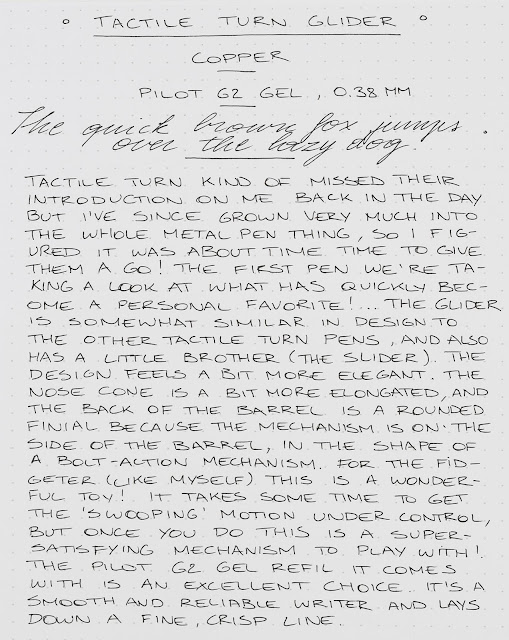 ° TACTILE TURN GLIDER °
COPPER
PILOT G2 GEL, 0.38 MM
The quick brown fox jumps
over the lazy dog.
TACTILE TURN KIND OF MISSED THEIR
INTRODUCTION ON ME BACK IN THE DAY
BUT I'VE SINCE GROWN VERY MUCH INTO
THE WHOLE METAL PEN THING, SO I FIG-
URED IT WAS ABOUT TIME TIME TO GIVE
THEM A GO! THE FIRST PEN WE'RE TA-
KING A LOOK AT WHAT HAS QUICKLY BEC-
OME A PERSONAL FAVORITE!... THE GLIDER
IS SOMEWHAT SIMILAR IN DESIGN TO
THE OTHER TACTILE TURN PENS, AND ALSO
HAS A LITTLE BROTHER (THE SLIDER). THE
DESIGN FEELS A BIT MORE ELEGANT. THE
NOSE CONE IS A BIT MORE ELONGATED, AND
THE BACK OF THE BARREL IS A ROUNDED
FINIAL BECAUSE THE MECHANISM IS ON THE
SIDE OF THE BARREL, IN THE SHAPE OF
A BOLT-ACTION MECHANISM. FOR THE FID-
GETER (LIKE MYSELF) THIS IS A WONDER-
FUL TOY! IT TAKES SOME TIME TO GET
THE 'SWOOPING' MOTION UNDER CONTROL,
BUT ONCE YOU DO THIS IS A SUPER-
SATISFYING MECHANISM TO PLAY WITH!
THE PILOT G2 GEL REFIL IT COMES
WITH IS AN EXCELLENT CHOICE. IT'S A
SMOOTH AND RELIABLE WRITER AND LAYS
DOWN A FINE, CRISP LINE.